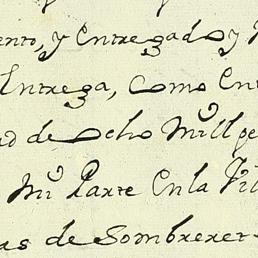 ento, y Entregado y
Entrega, Como En
ad de ocho Mill pe
Mi Parte En la Vil
as de Sombreret